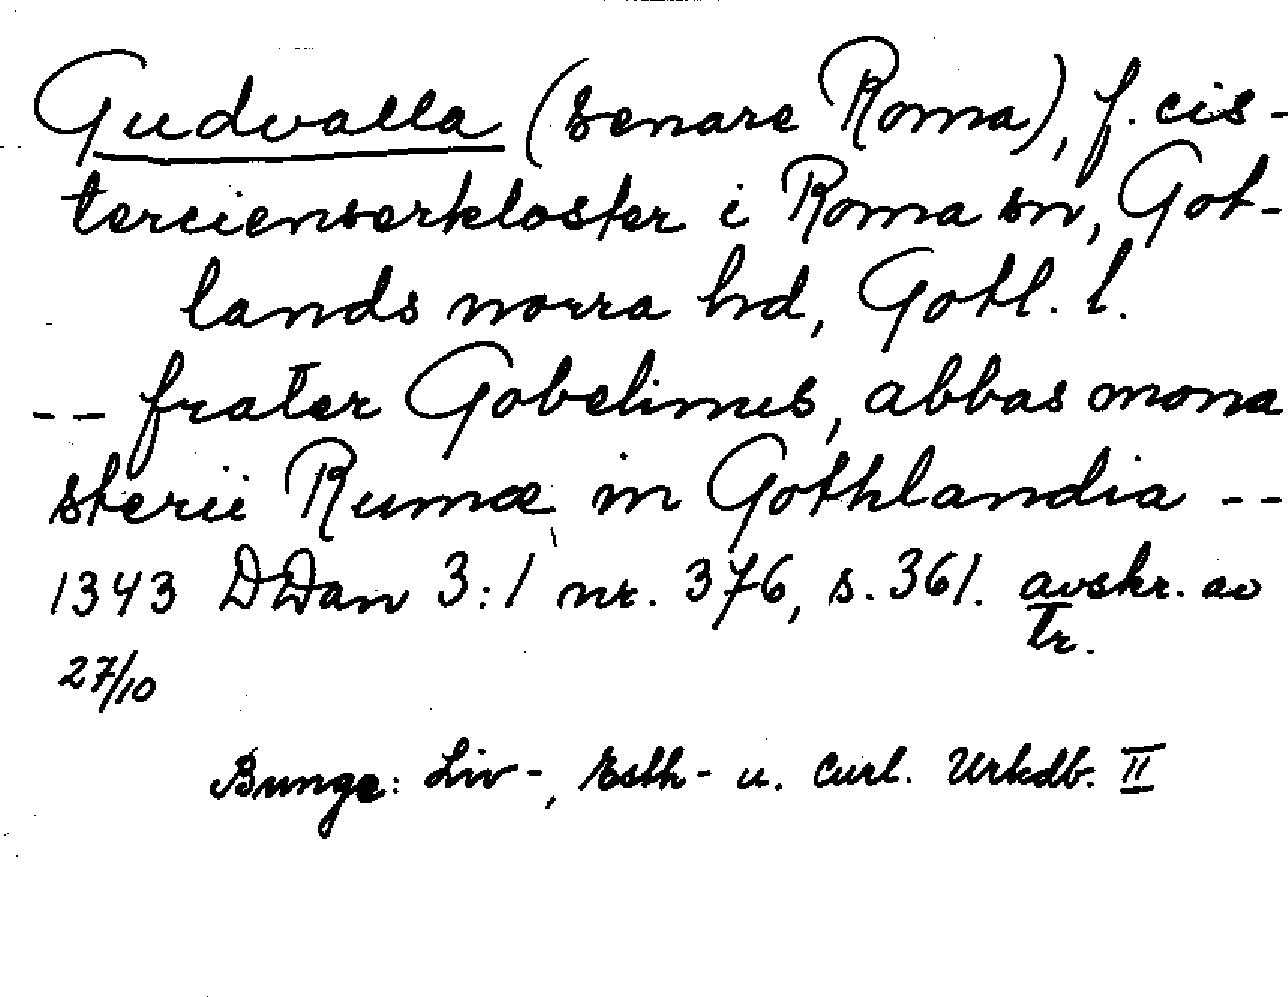 Gudvalla (senare Roma), f. cis-
tercienserkloster i Roma sn, Got-
lands norra hd, Gotl. l.
-- frater Gobelinus, abbas mona
sterii Rumæ in Gothlandia --
1343 DDan 3:1 nr. 376, s. 361. avskr. av
tr.
27/10
Bunge: Liv-, Esth- u. Curl. Urkdb. II